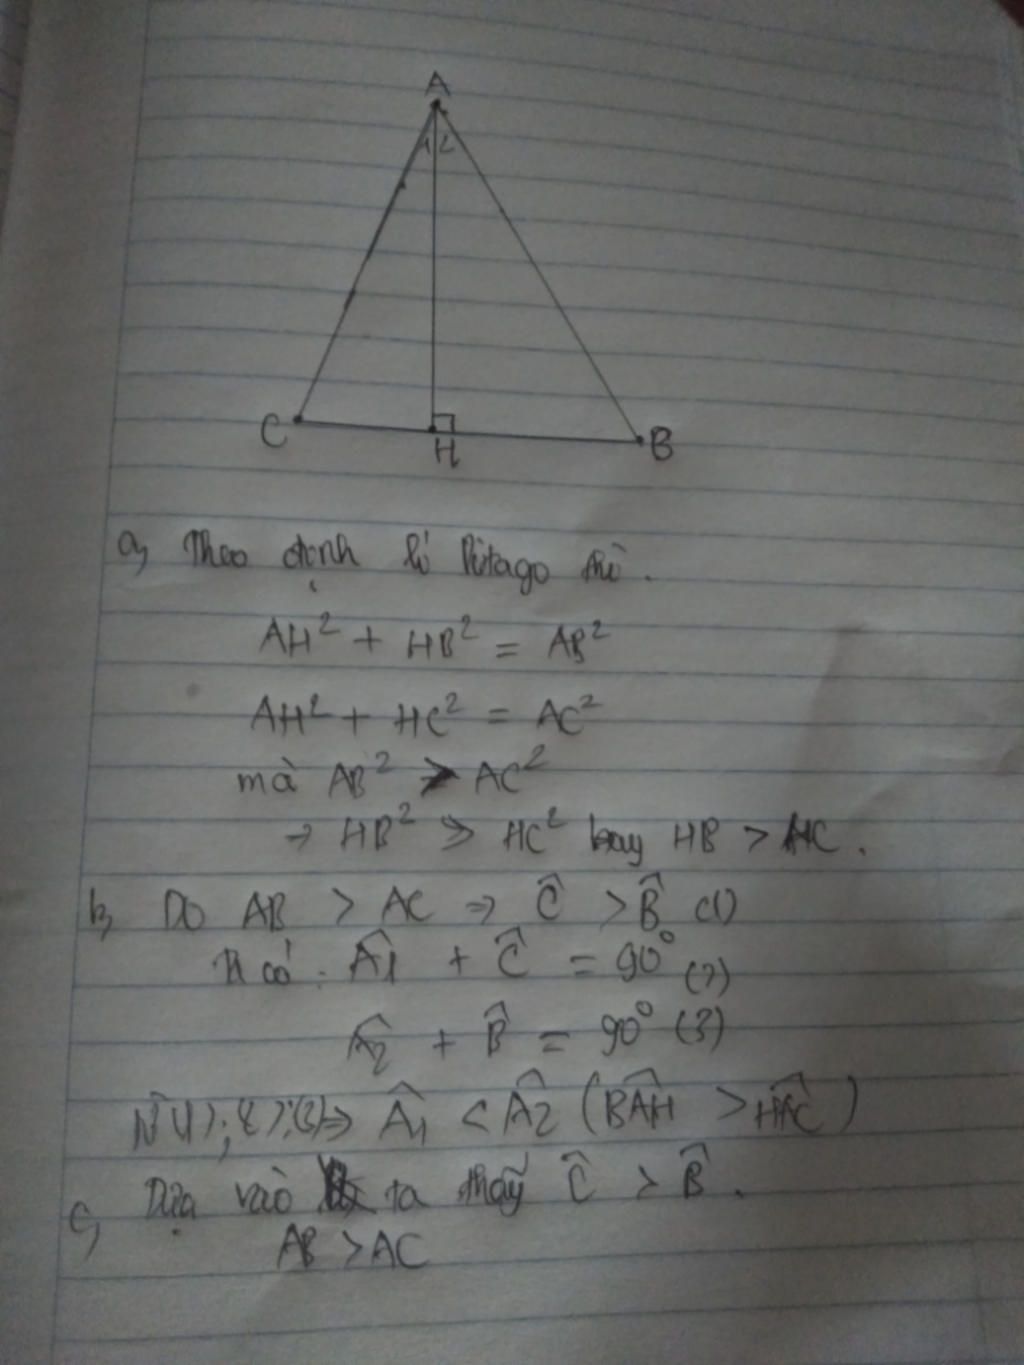 A
1 2
C
H
B
a, Theo định lí Pitago thì.
AH² + HB² = AB²
AH² + HC² = AC²
mà AB² > AC²
→ HB² > HC² hay HB > HC.
b, Do AB > AC ⇒ Ĉ > B̂ (1)
Ta có: Â1 + Ĉ = 90° (2)
Â2 + B̂ = 90° (3)
(1); (2); (3) ⇒ Â1 < Â2 (BÂH > HÂC)
c, Dựa vào ta thấy Ĉ > B̂.
AB > AC